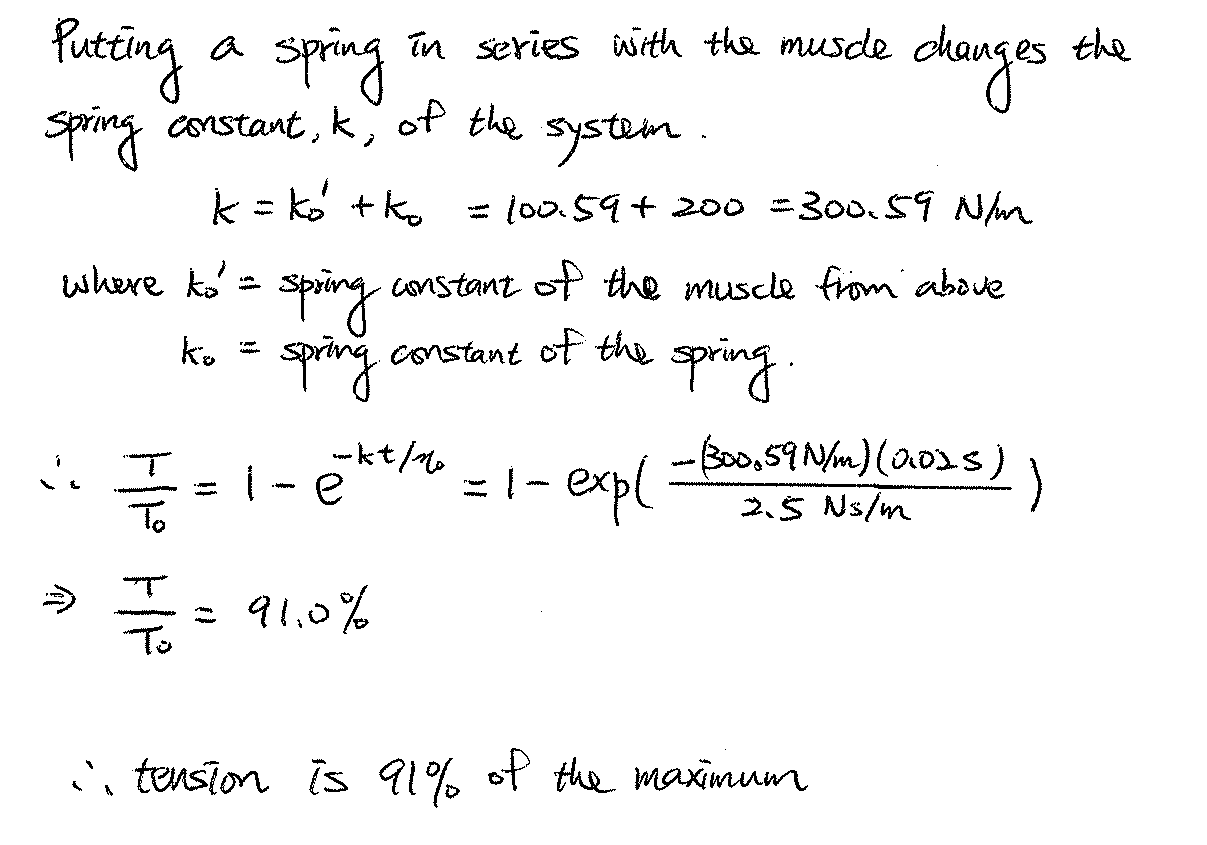 Putting a spring in series with the muscle changes the
spring constant, k, of the system.
k = k₀' + k₀ = 100.59 + 200 = 300.59 N/m
where k₀' = spring constant of the muscle from above
k₀ = spring constant of the spring.
∴ T/T₀ = 1 - e^(-kt/η₀) = 1 - exp( -(300.59 N/m)(0.02 s) / 2.5 Ns/m )
⇒ T/T₀ = 91.0%
∴ tension is 91% of the maximum